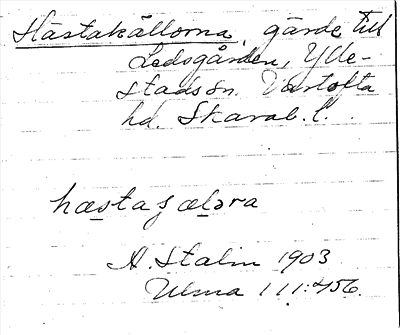 Hästakällorna, gärde till
Ledsgården, Ylle-
stads sn. Vartofta
hd. Skarab. l.
hæstaʒæləra
A. Stalin 1903
Ulma 111:456.